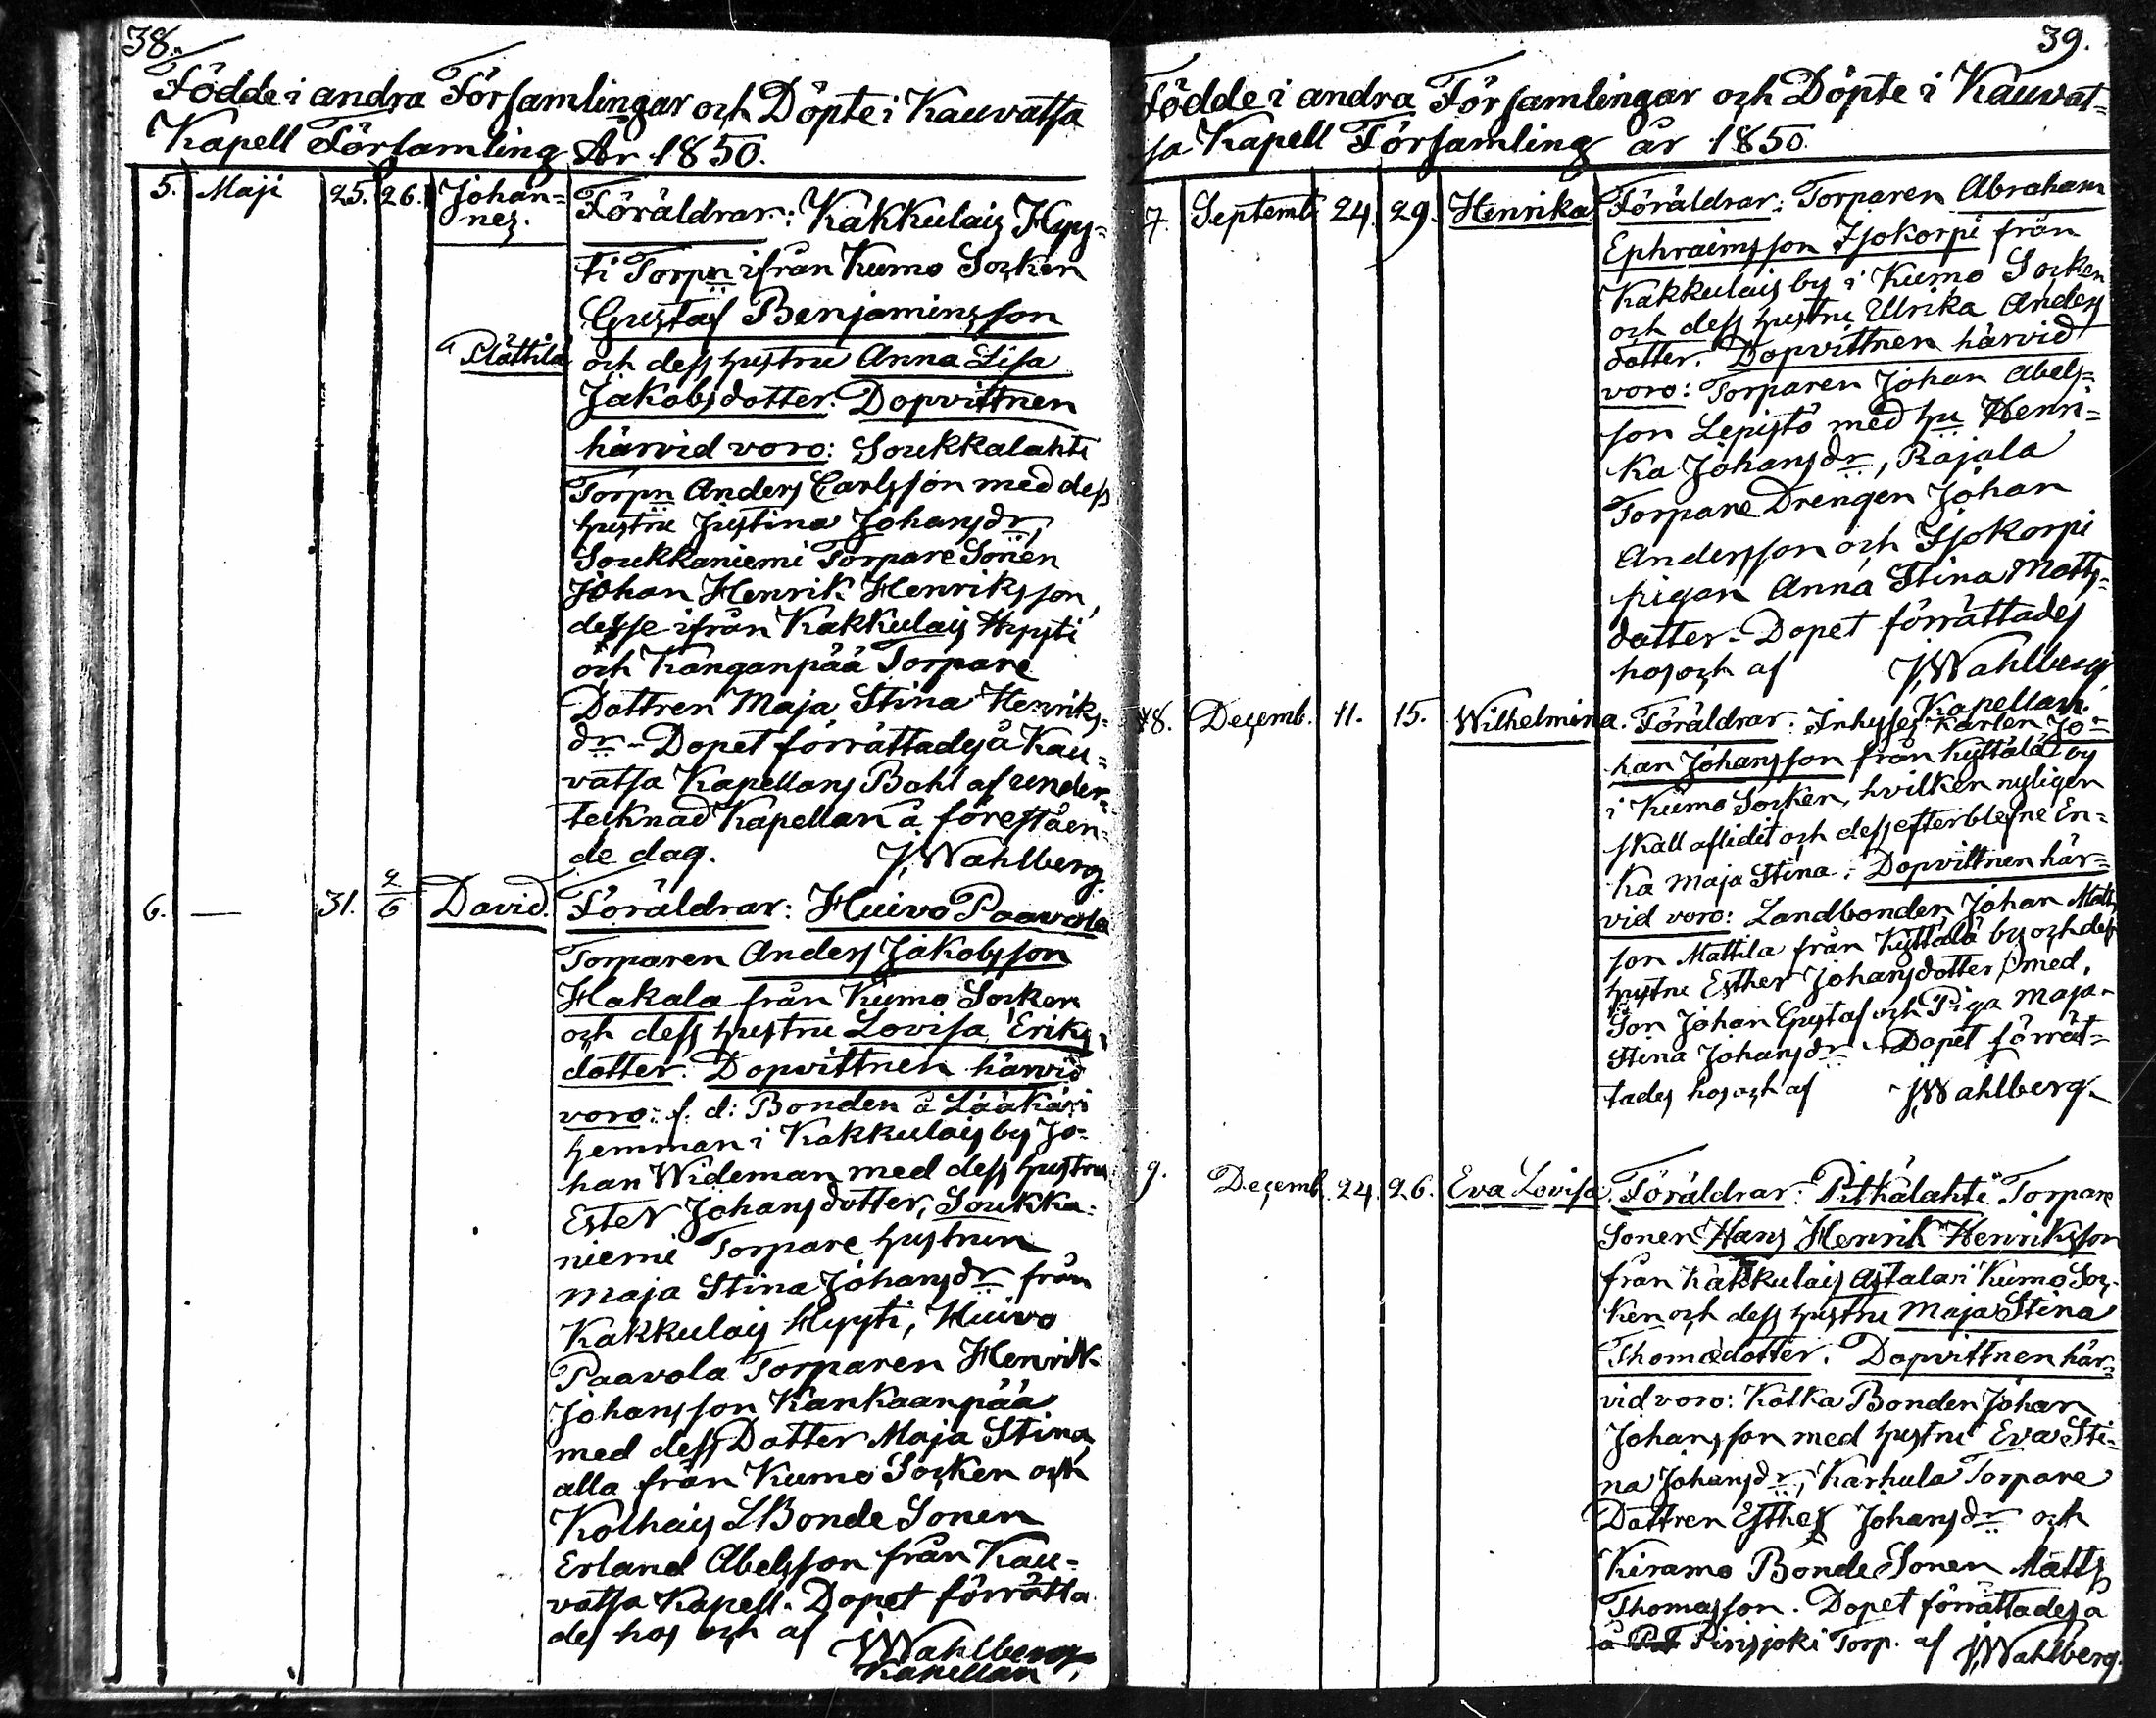 38.
Födde i andra Församlingar och Döpte i Kauvatsa
Kapell Församling År 1850.
5. Maji 25. 26. Johan=
nes.
Föräldrar: Kakkulais Hyy=
ti Torpn ifrån Kumo Socken
Gustaf Benjaminsson
å Plättilä
och dess hustru Anna Lisa
Jakobsdotter. Dopvittnen
härvid voro: Soukkalahti
Torpn Anders Carlsson med dess
hustru Justina Johansdr,
Soukkaniemi Torpare Sonen
Johan Henrik Henriksson,
desse ifrån Kakkulais Hyyti
och Kanganpää Torpare
Dottren Maja Stina Henriks=
dr - Dopet förrättades å Kau=
vatsa Kapellans Bohl af under=
tecknad Kapellan å föreståen=
de dag. J. Wahlberg.
6. — 31. 2/6 David. Föräldrar: Huivo Paavola
Torparen Anders Jakobsson
Hakala från Kumo Socken
och dess hustru Lovisa Eriks=
dotter. Dopvittnen härvid
voro: f. d: Bonden å Lääkäri
hemman i Kakkulais by Jo=
han Wideman med dess hustru
Ester Johansdotter, Soukka=
niemi Torpare hustrun
Maja Stina Johansdr från
Kakkulais Hyyti, Huivo
Paavola Torparen Henrik
Johansson Kankaanpää
med dess Dotter Maja Stina
alla från Kumo Socken och
Kolhais LBonde Sonen
Erland Abelsson från Kau=
vatsa Kapell. Dopet förrätta
des hos och af J. Wahlberg,
Kapellan
39.
Födde i andra Församlingar och Döpte i Kauvat=
sa Kapell Församling år 1850.
7. Septemb. 24. 29. Henrika Föräldrar: Torparen Abraham
Ephraimsson Isokorpi från
Kakkulais by i Kumo Socken
och dess hustru Ullrika Anders
dotter. Dopvittnen härvid
voro: Torparen Johan Abels=
son Lepistö med hu Henri=
ka Johansdr, Rajala
Torpare Drengen Johan
Andersson och Isokorpi
pigan Anna Stina Matts=
dotter. Dopet förrättades
hos och af J. Wahlberg
Kapellan.
8. Decemb. 11. 15. Wilhelmina. Föräldrar: Inhyses Karlen Jo=
han Johansson från Kyttälä by
i Kumo Socken, hvilken nyligen
skall aflidit och dess efterblefne En=
ka Maja Stina. Dopvittnen här=
vid voro: Landbonden Johan Matts
son Mattila från Kyttälä by och dess
hustru Esther Johansdotter, med,
Son Johan Gustaf och Piga Maja
Stina Johansdr. Dopet förrät=
tades hos och af J. Wahlberg.
9. Decemb. 24. 26. Eva Lovisa. Föräldrar: Pitkälahti Torpare
Sonen Hans Henrik Henriksson
från Kakkulais Astala i Kumo Soc=
ken och dess hustru Maja Stina
Thomædotter. Dopvittnen här=
vid voro: Kotka Bonden Johan
Johansson med hustru Eva Sti=
na Johansdr, Karhula Torpare
Dottren Esther Johansdr och
Kiramo Bonde Sonen Matts
Thomasson. Dopet förrättades å
å Pirisjoki Torp. af J. Wahlberg.